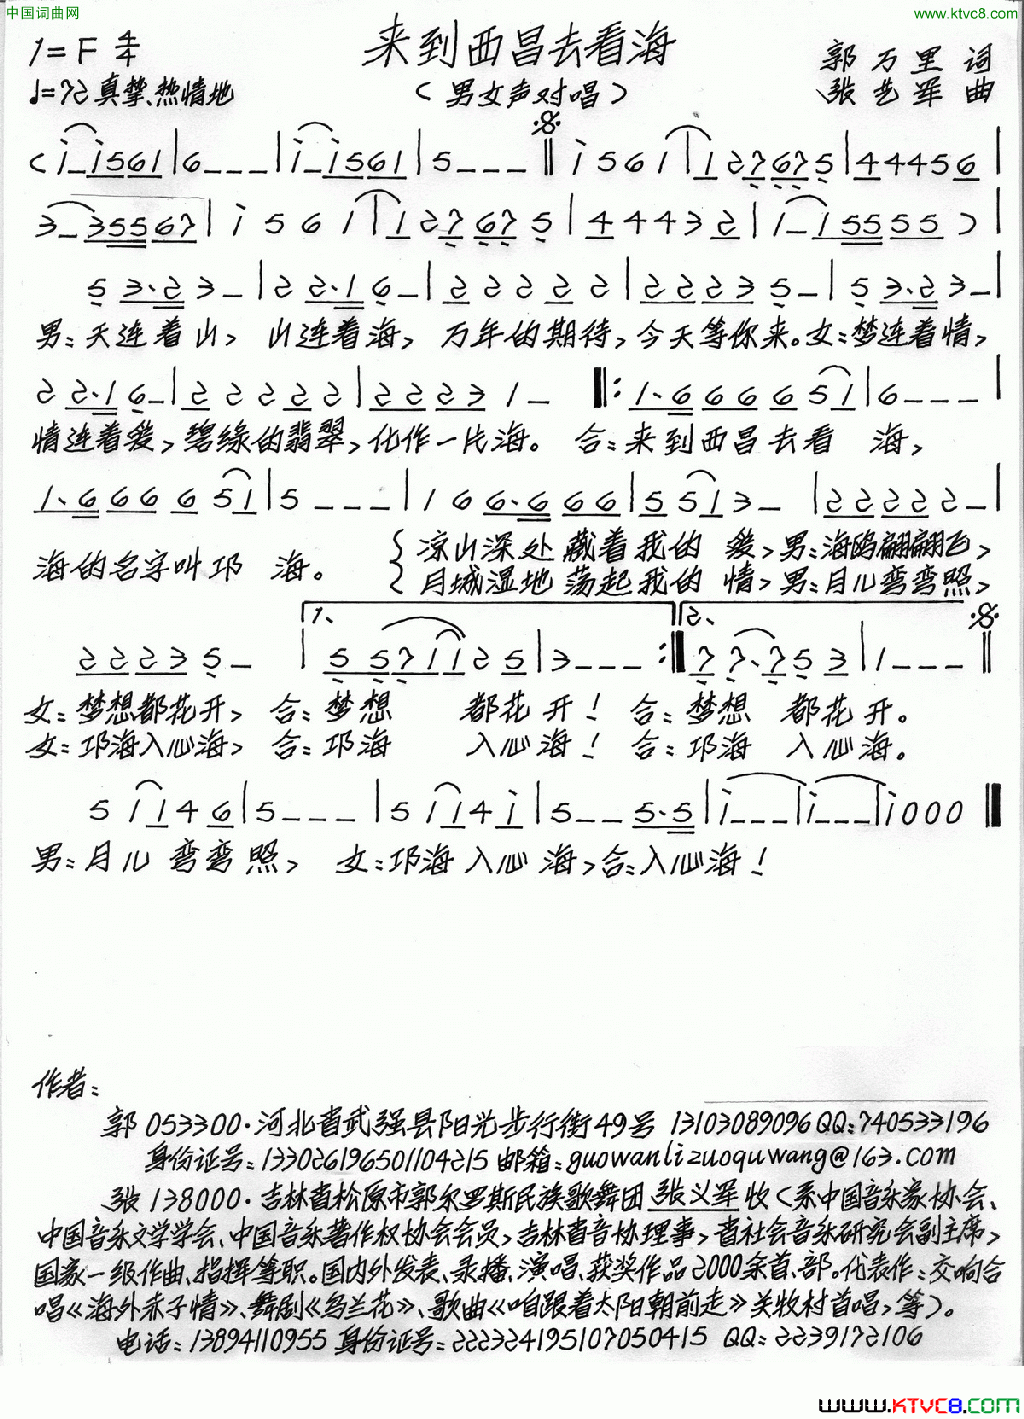 中国词曲网
www.ktvc8.com
来到西昌去看海
1=F 4/4
♩=72 真挚、热情地
(男女声对唱)
郭万里 词
张艺军 曲
(i_i561|6___|i_i561|5___‖i561|127675|44456|
3_35567|i561|127675|44432|1_15555)|
53·23_|22·16_|22222|22235_|53·23_|
男:天连着山, 山连着海, 万年的期待,今天等你来。女:梦连着情,
22·16_|22222|22231_‖:1·666651|6___|
情连着爱,碧绿的翡翠,化作一片海。合:来到西昌去看 海,
1·666651|5___|166·666|5513_|22222_|
海的名字叫邛 海。
凉山深处藏着我的 爱,男:海鸥翩翩飞,
月城湿地荡起我的 情,男:月儿弯弯照,
1、
2、
22235_|5571125|3___:‖77·753|1___‖
女:梦想都花开, 合:梦想 都花开! 合:梦想 都花开。
女:邛海入心海, 合:邛海 入心海! 合:邛海 入心海。
51146|5___|5114i|5__5·5|i___|i___|i000‖
男:月儿弯弯照, 女:邛海入心海,合:入心海!
作者:
郭 053300·河北省武强县阳光步行街49号 13103089096 QQ:740533196
身份证号:133026196501104215 邮箱:guowanlizuoquwang@163.com
张 138000·吉林省松原市郭尔罗斯民族歌舞团 张义军收(系中国音乐家协会、
中国音乐文学学会、中国音乐著作权协会会员,吉林省音协理事,省社会音乐研究会副主席,
国家一级作曲、指挥等职。国内外发表、录播、演唱、获奖作品2000余首、部。代表作:交响合
唱《海外赤子情》、舞剧《乌兰花》、歌曲《咱跟着太阳朝前走》关牧村首唱,等)。
电话:13894110955 身份证号:222324195107050415 QQ:2239172106
www.KTVC8.com